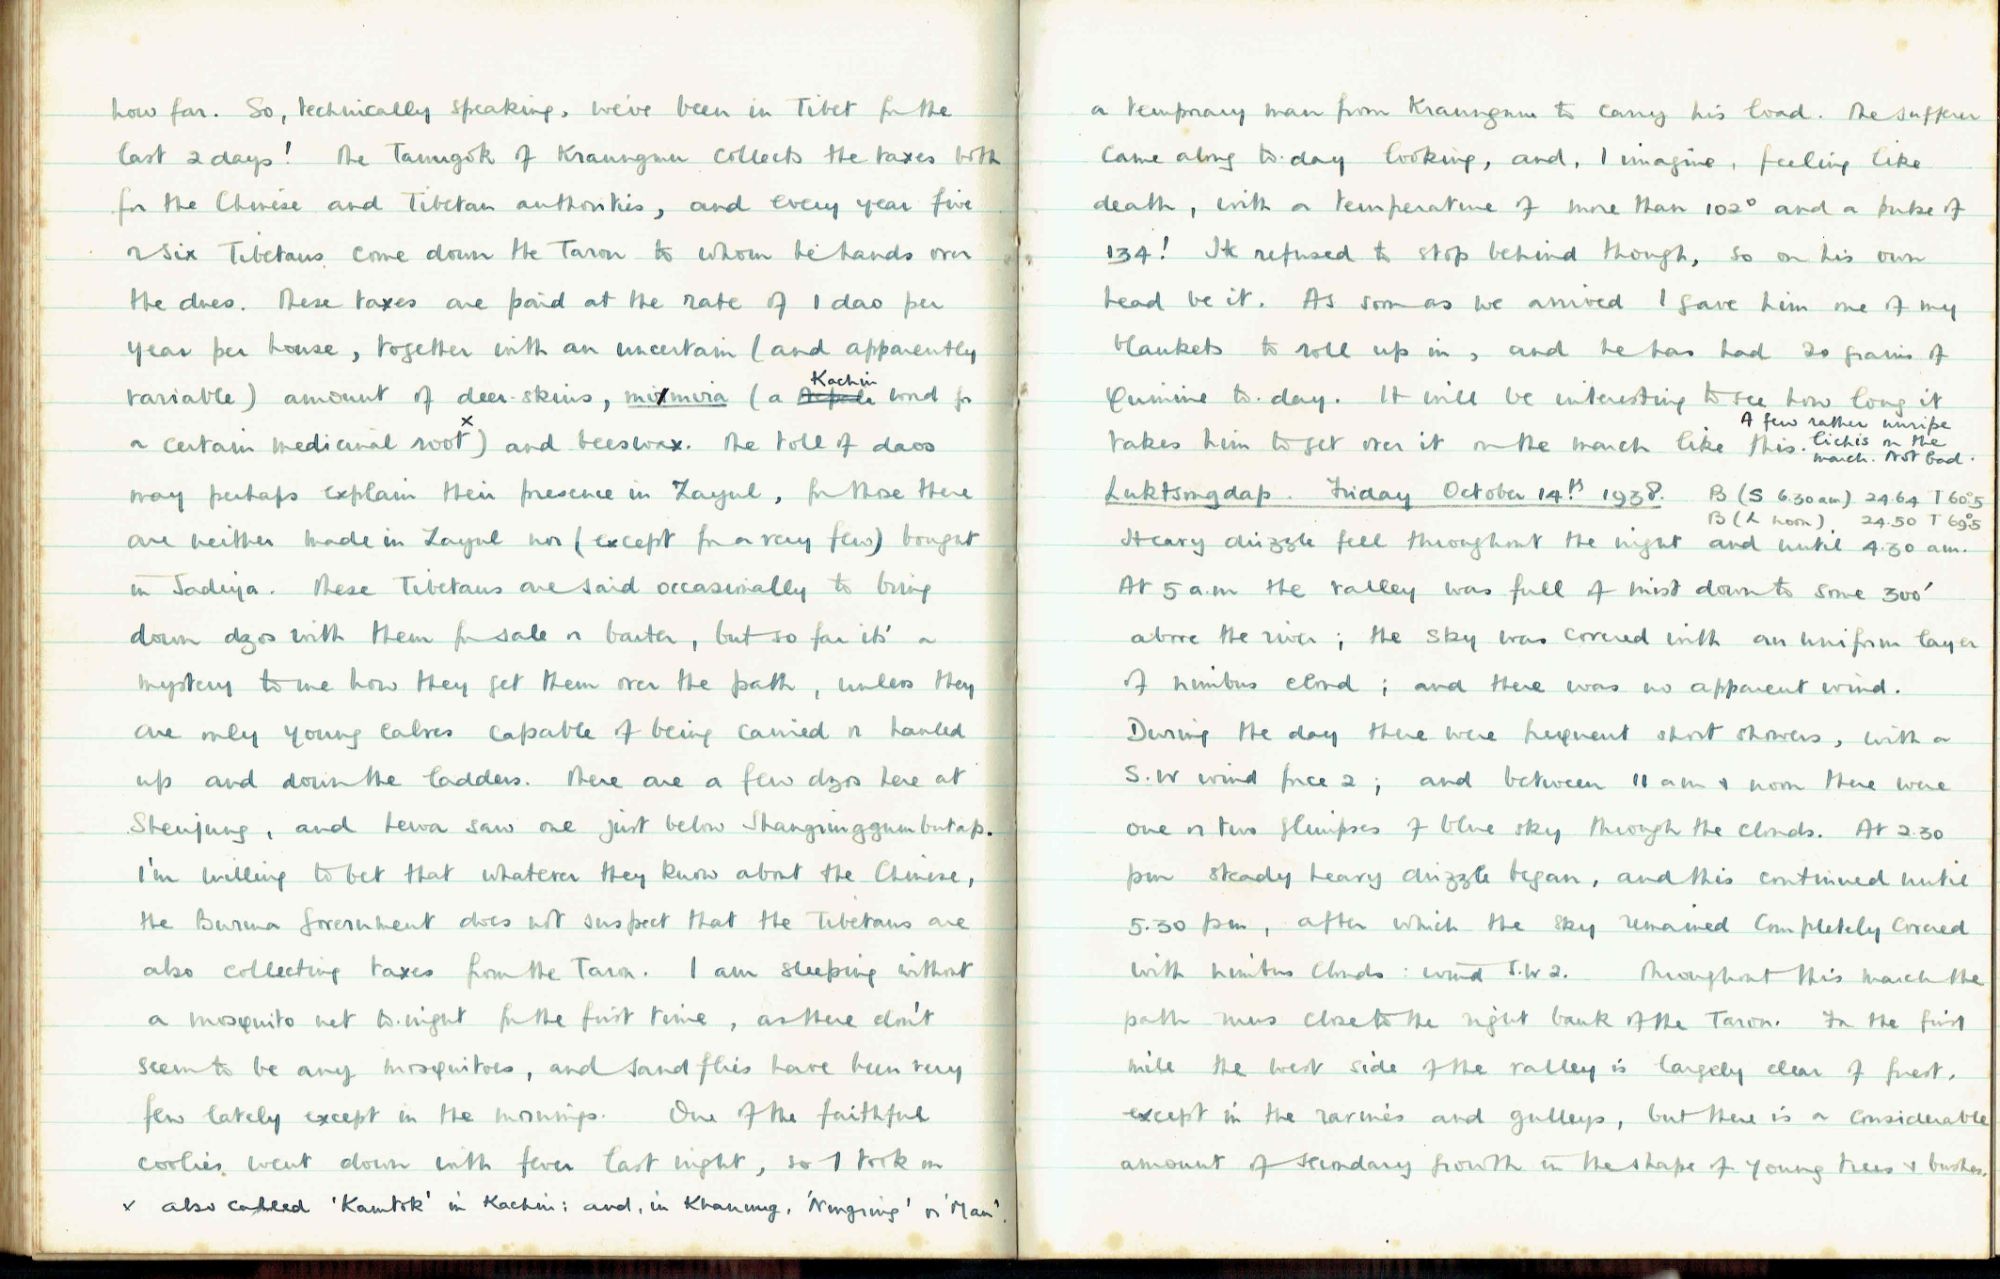 how far. So, technically speaking, we've been in Tibet for the
last 2 days! The Taungok of Kraungmu collects the taxes both
for the Chinese and Tibetan authorities, and every year five
or six Tibetans come down the Taron to whom he hands over
the dues. These taxes are paid at the rate of 1 dao per
year per house, together with an uncertain (and apparently
variable) amount of deer-skins, (a Kachin word for
a certain medicinal root x) and beeswax. The toll of daos
may perhaps explain their presence in Zayul, for those there
are neither made in Zayul nor (except for a very few) bought
in Sadiya. These Tibetans are said occasionally to bring
down dzos with them for sale or barter, but so far it's a
mystery to me how they get them over the path, unless they
are only young calves capable of being carried or hauled
up and down the ladders. There are a few dzos here at
Shenjung, and Lewa saw one just below Shangringgumbutap.
I'm willing to bet that whatever they know about the Chinese,
the Burma Government does not suspect that the Tibetans are
also collecting taxes from the Taron. I am sleeping without
a mosquito net to-night for the first time, as there don't
seem to be any mosquitoes, and sandflies have been very
few lately except in the mornings. One of the faithful
coolies went down with fever last night, so I took on
x also called 'Kamtok' in Kachin; and, in Khanung, 'Nungring' or 'Man'.
a temporary man from Kraungmu to carry his load. The sufferer
came along to-day looking, and, I imagine, feeling like
death, with a temperature of more than 102° and a pulse of
134! He refused to stop behind though, so on his own
head be it. As soon as we arrived I gave him one of my
blankets to roll up in, and he has had 20 grains of
Quinine to-day. It will be interesting to see how long it
takes him to get over it on the march like this. A few rather unripe
lichis on the
march. Not bad.
Luktsongdap. Friday October 14th 1938. B (S 6.30 am) 24.64 T 60°.5
B (L noon) 24.50 T 69°.5
Heavy drizzle fell throughout the night and until 4.30 am.
At 5 a.m the valley was full of mist down to some 300'
above the river; the sky was covered with an uniform layer
of nimbus cloud; and there was no apparent wind.
During the day there were frequent short showers, with a
S.W wind force 2; and between 11 am & noon there were
one or two glimpses of blue sky through the clouds. At 2.30
pm steady heavy drizzle began, and this continued until
5.30 pm, after which the sky remained completely covered
with nimbus clouds: wind S.W 2. Throughout this march the
path runs close to the right bank of the Taron. In the first
mile the west side of the valley is largely clear of forest,
except in the ravines and gulleys, but there is a considerable
amount of secondary growth in the shape of young trees & bushes.